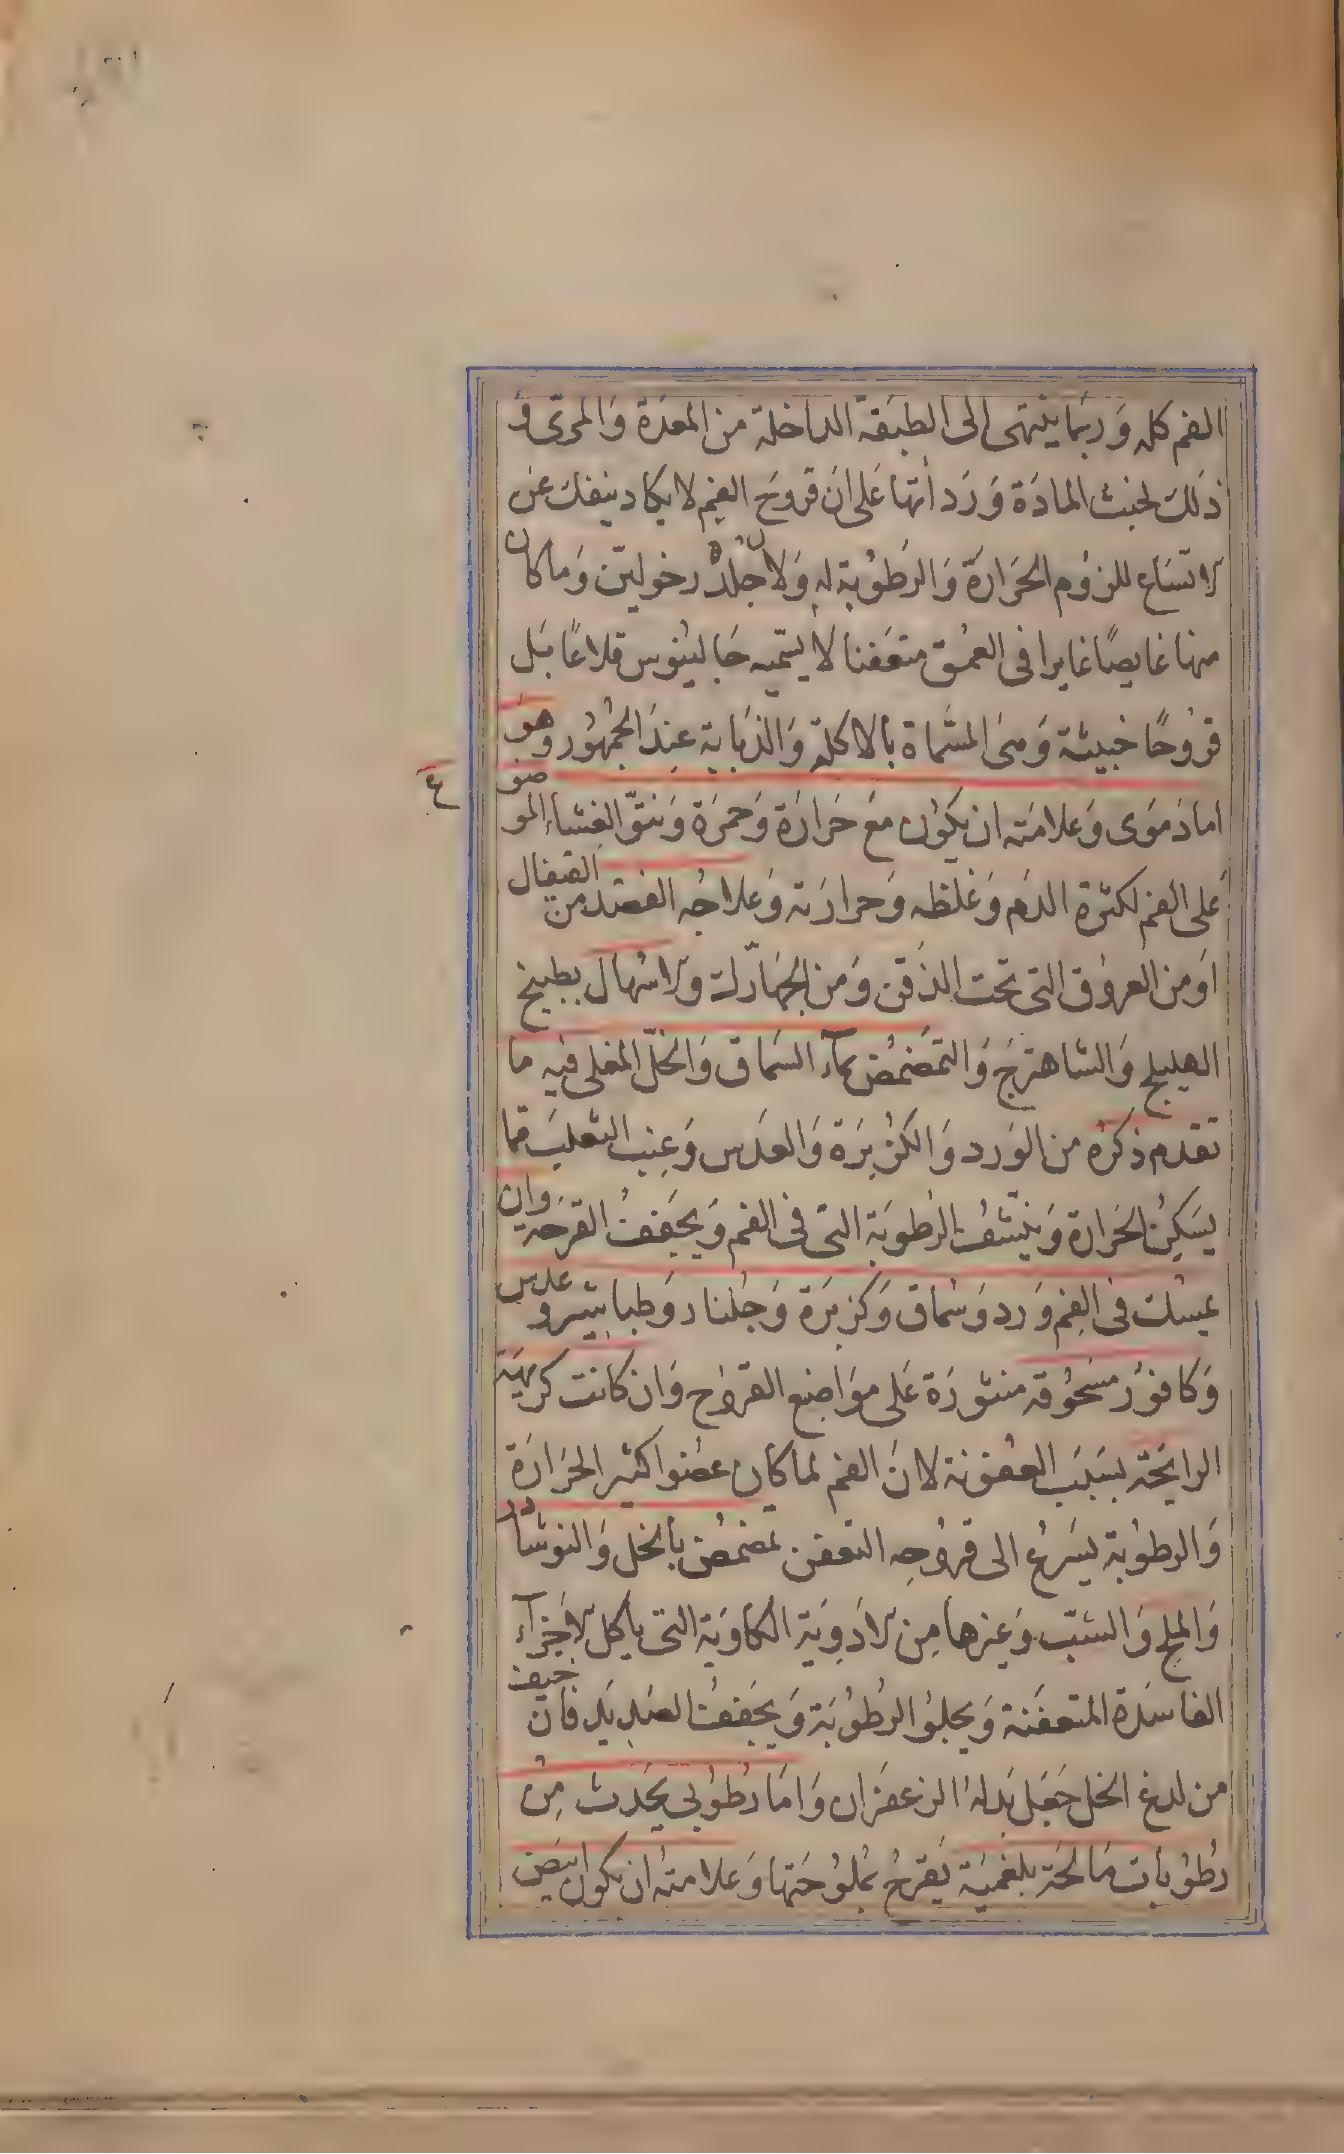 الفم كله وَربّما ينتهى الى الطبَقة الداخلة من المعدَة وَالمرىّ وَ
ذلكَ لخبث المادَة وَرَدأتها عَلى ان قروحَ الفم لا يكاد ينفك عَن
الاتسَاع للزوُم الحَرارَة وَالرَطوُبة له وَلانّ جلدهُ رخو ليّن وَما كان
منها غايصًا غايرا فى العمُق متعَفنا لا يسّميه جَالينوس قلاعًا بَل
قروُحًا خبيثة وَهىَ المسَّماة بالاكلة وَالذبابة عِندَ الجمهُور وهوَ
اما دَموَى وَعلامَته ان يكوُن مَع حَرارَة وَحمرَة وَنتوّ الغِشاء الموضو
ع
عَلى الفم لكثرة الدَم وَغلظه وَحرارَته وَعلاجُه الفصَد من القيفال
اوَ من العروُق التى تحت الذقن وَمن الجهَارك والاسهال بطبيخ
الهليلج وَالشاهترجَ وَالتمَضمُض بمآء السَماق وَالخلّ المغلى فيه ما
تقدم ذكرُه من الوَرد وَالكزبَرَة وَالعدَس وَعِنب الثعلبَ مّما
يسَكِنُ الحَرارة وَينشّفُ الرُطوبَة التى فى الفم وَيجَففُ القرحَة وان
يمسَك فى الفِم وَرد وَسُماق وَكزبَرَة وَجُلنار وَطباشير و عدس
وَكافوُر مسَحُوقه منثورَة عَلى موَاضِع القروُح وَان كانت كريهَة
الرايحَة بسَبَب العفونة لانَ الفم لما كان عضوا كثير الحَرارَة
وَالرطوُبة يسَرعُ الى قروُحِه التعفن تمضمُض بالخل وَالنوشادر
وَالملح وَالشبّ وَغيرها مِن الادَوِيَة الكاوَيَة التى ياكل الاجَزآء
الفاسدَة المتعفَنة وَيجلوُ الرُطوُبَة وَيجَففُ الصَديَد فان خيف
من لدغ الخل جَعَل بَدلهُ الزعفَران وَامَا رطُوُبى يحَدث مِنُ
رطُوُبات مَالحَة بلغميَة يَقرحُ بملُوُحَتها وَعلامتهُ ان يكوُن ابيَض